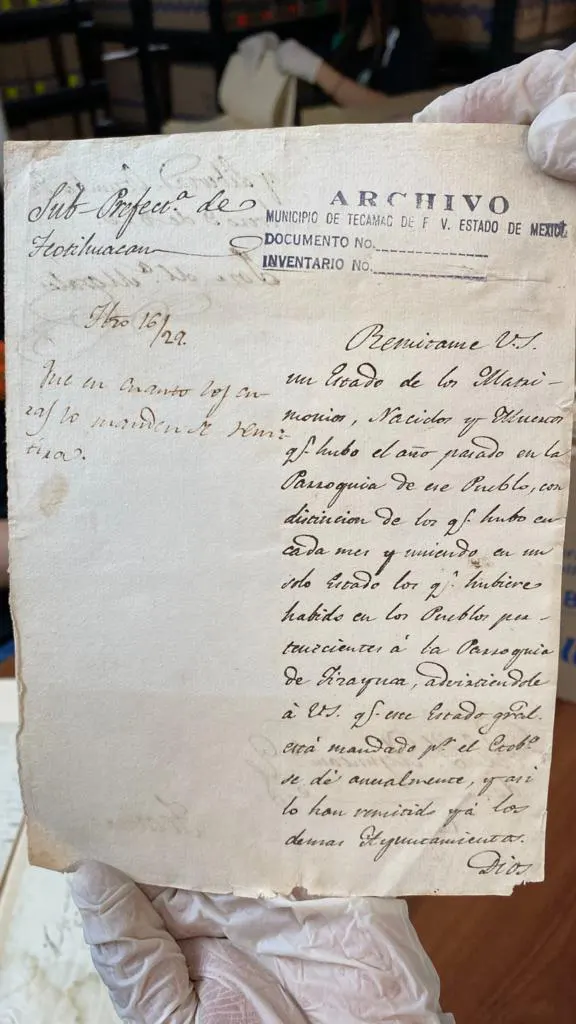 Sub-Prefect.ª de
Teotihuacan
ARCHIVO
MUNICIPIO DE TECAMAC DE F V. ESTADO DE MEXICO
DOCUMENTO No.
INVENTARIO No.
16/29.
Que en cuanto los cu-
ras lo manden se remi-
tira.
Remitame V.S.
un Estado de los Matri-
monios, Nacidos y Muertos
q.e hubo el año pasado en la
Parroquia de ese Pueblo, con
distincion de los q.e hubo en
cada mes y uniendo en un
solo Estado los q.e hubiere
habido en los Pueblos per-
tenecientes á la Parroquia
de Tizayuca, advirtiendole
á VS. q.e este Estado gral.
está mandado p.r el Exob.º
se dé anualmente, y asi
lo han remitido yá los
demas Ayuntamientos.
Dios